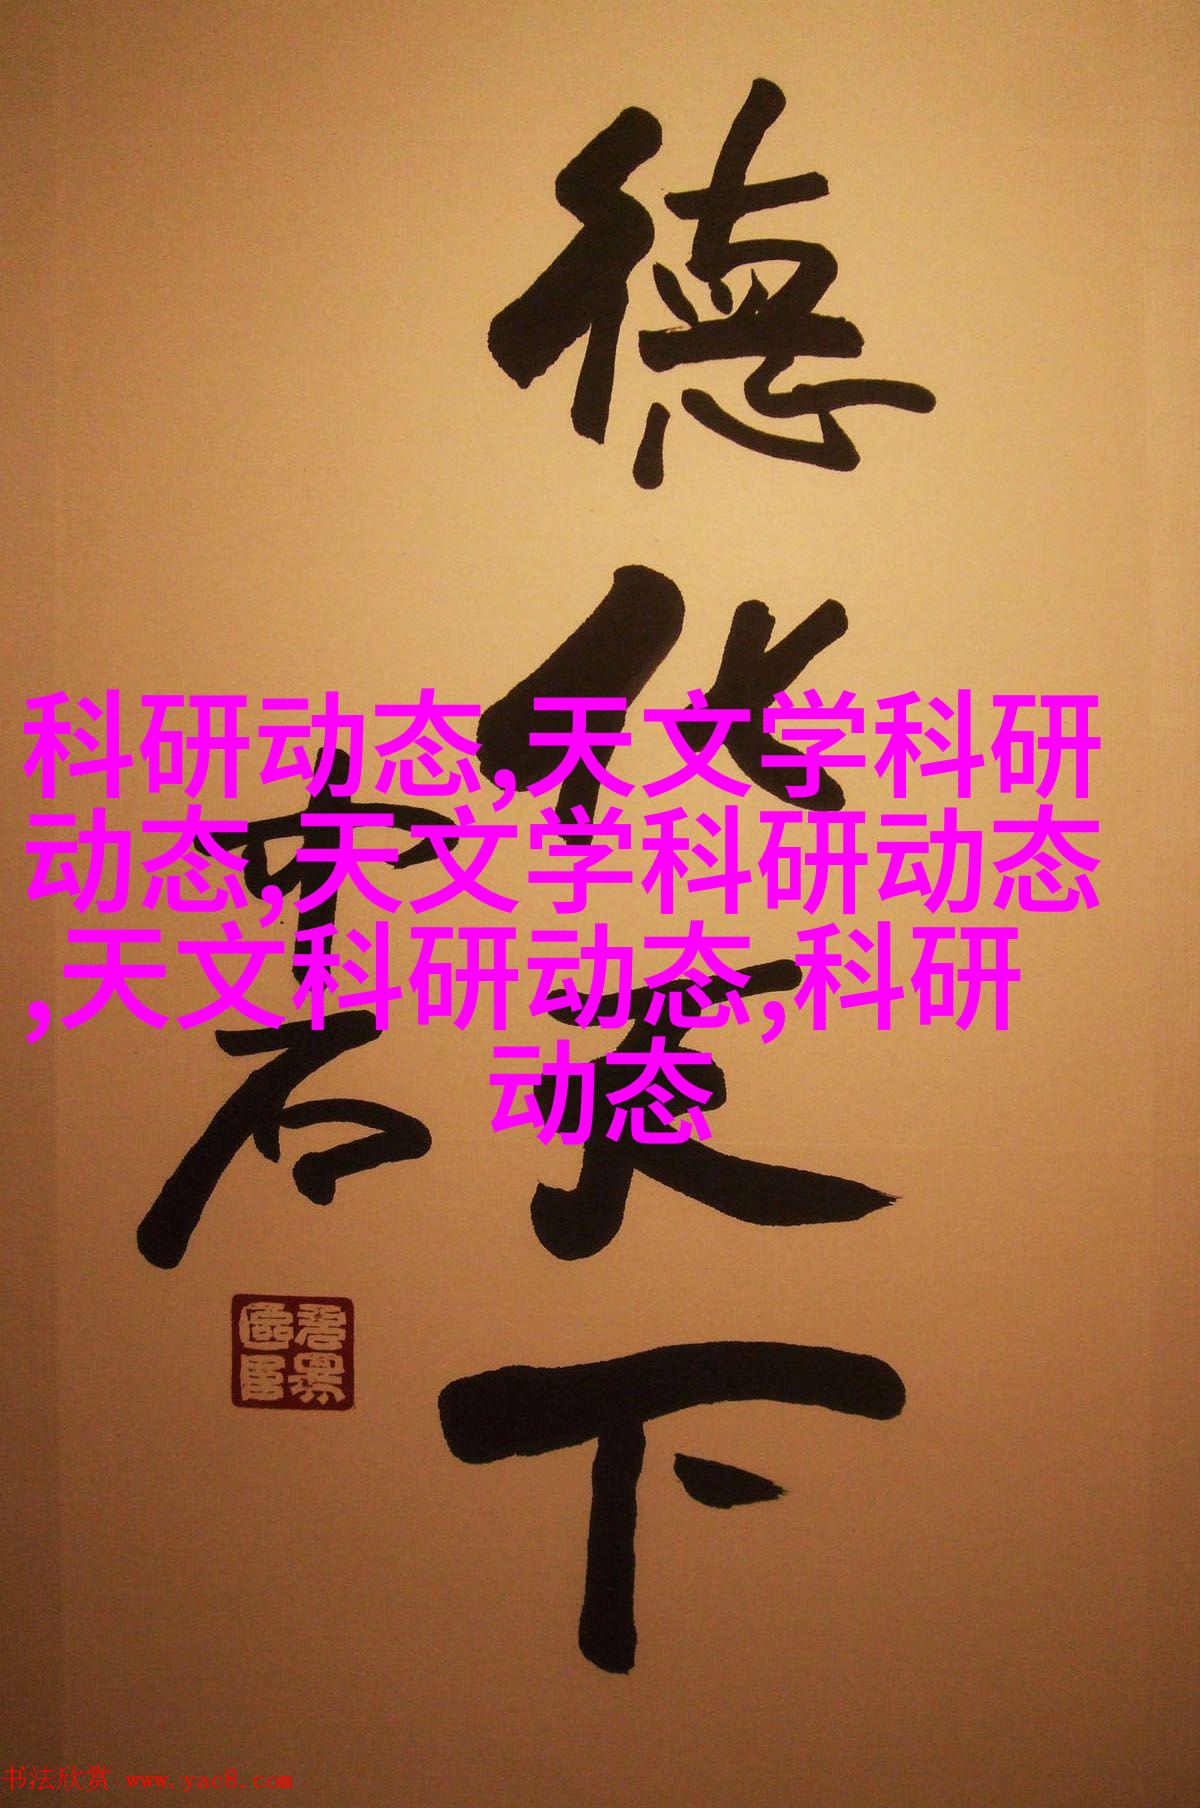 德化天下
中石
科研动态,天文学科研
动态,天文学科研动态
,天文科研动态,科研
动态
书法欣赏 www.yac8.com